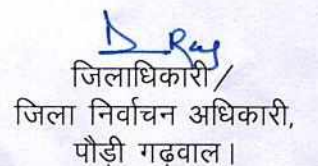 जिलाधिकारी/
जिला निर्वाचन अधिकारी,
पौड़ी गढ़वाल।